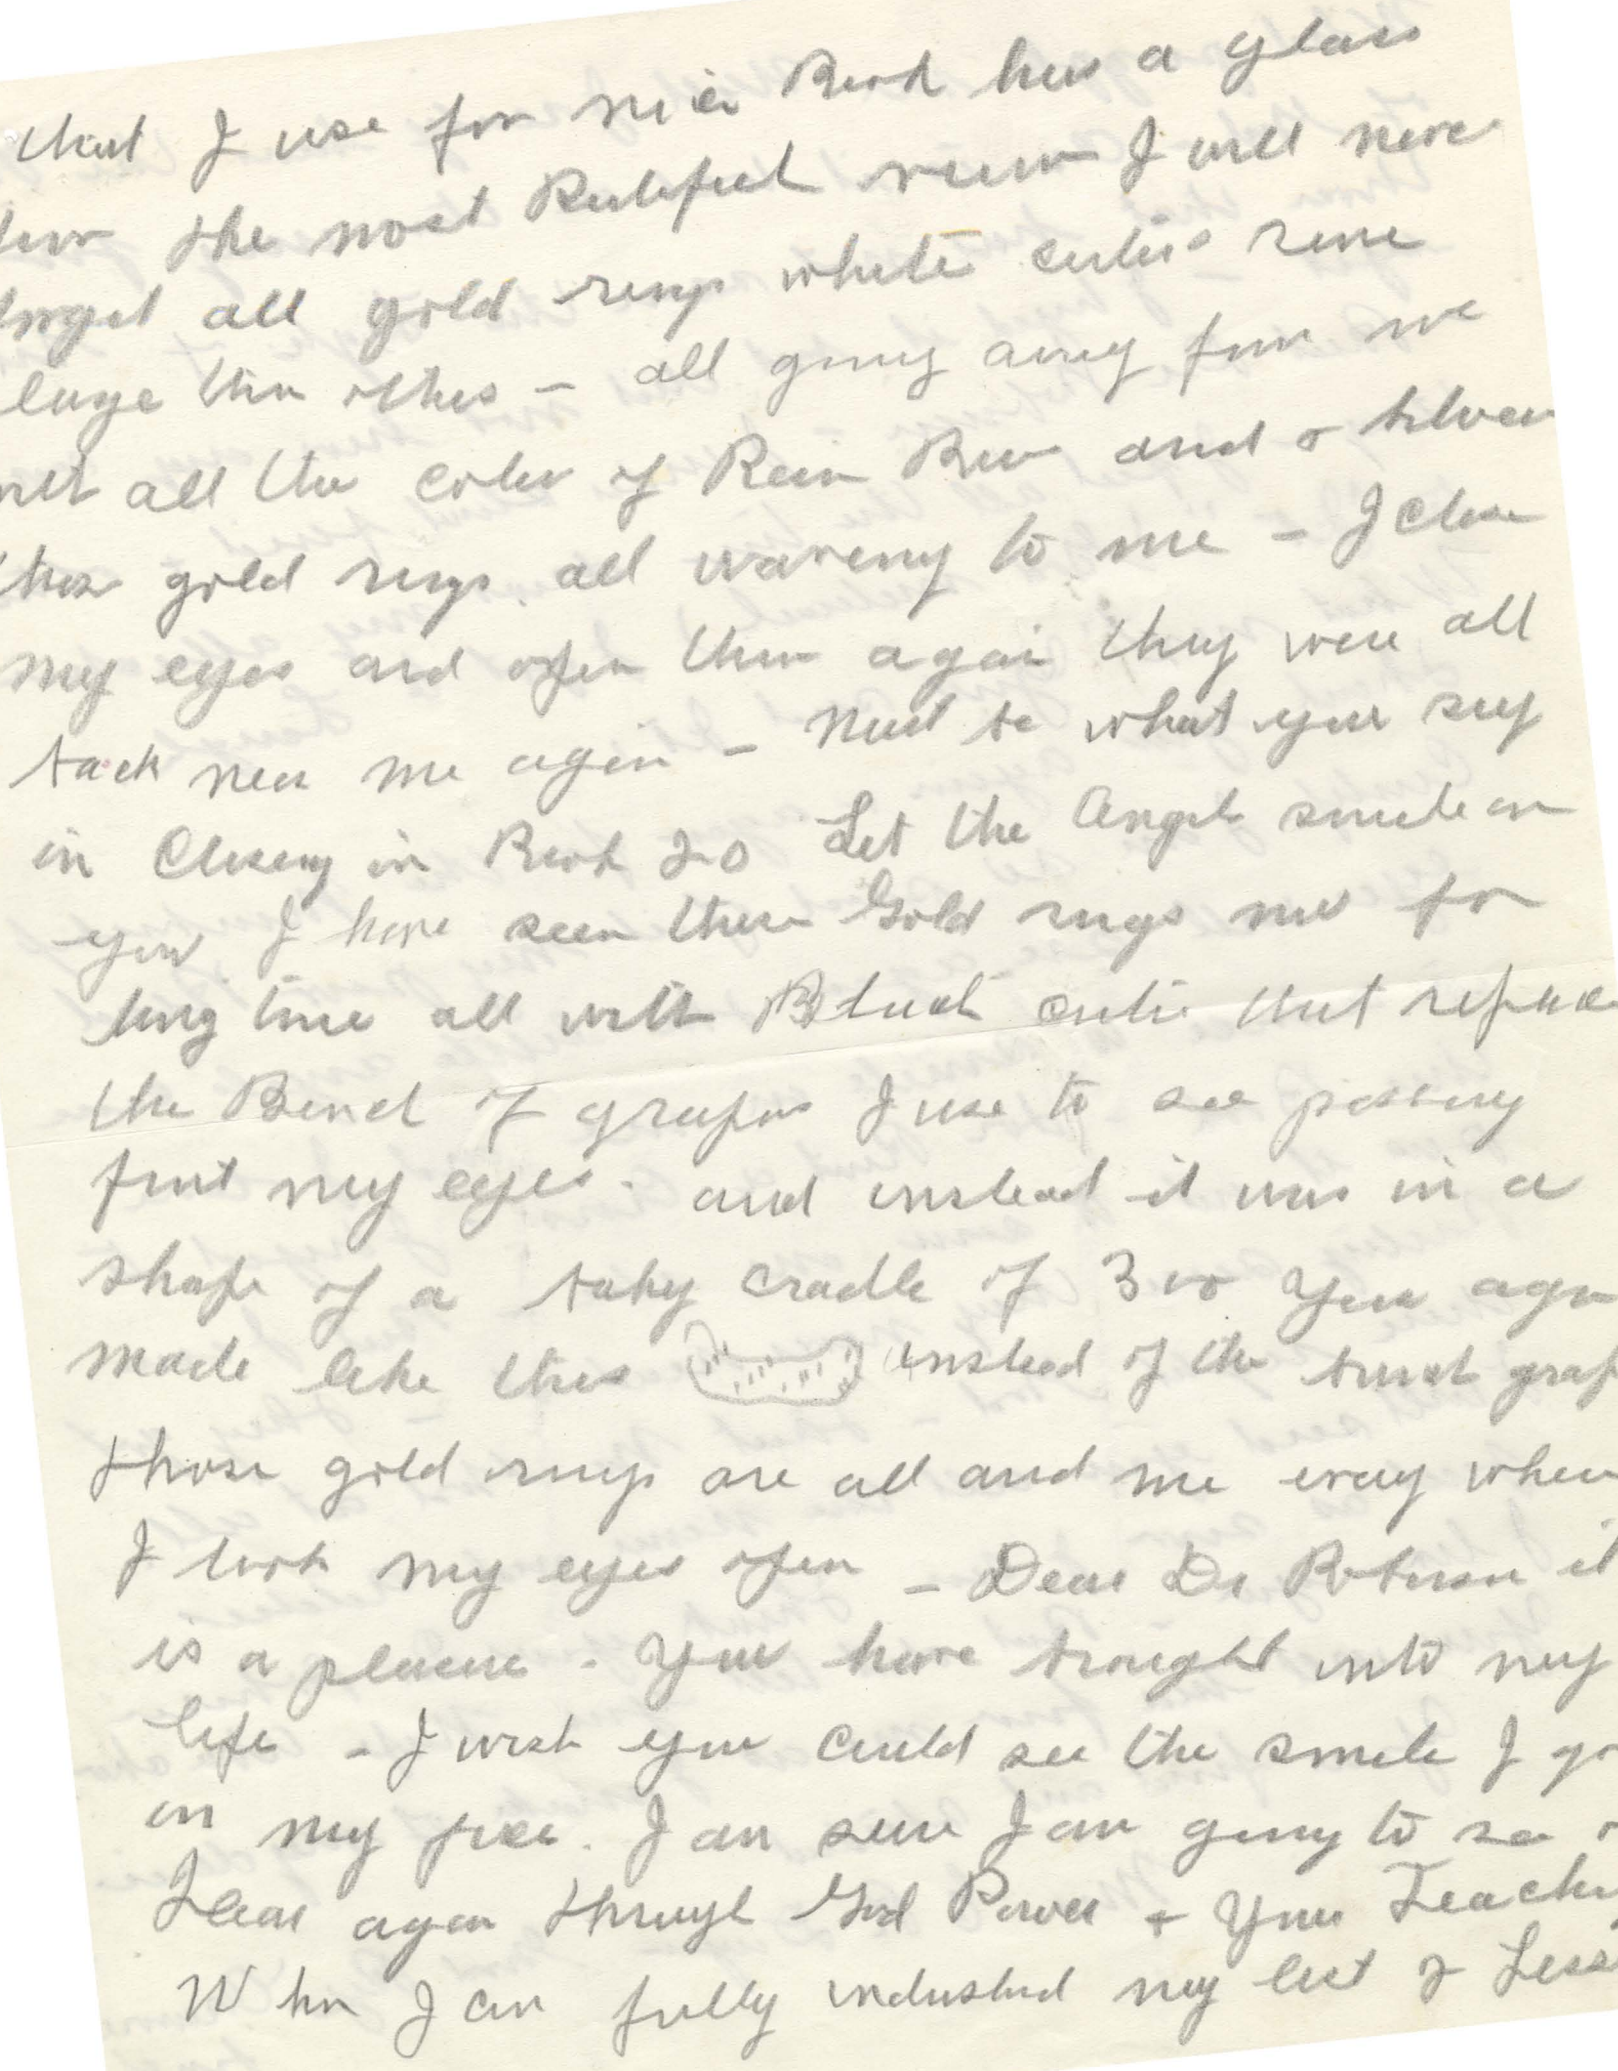 that I use for nice Book has a glass
the most Butefuel view I will never
all gold rings white center some
large then others - all going away from me
with all the color of Rain Bow and a silver
those gold rings all waveing to me - I close
my eyes and open them again they were all
back near me again - must be what you say
in Closeng in Book 20 Let the Angels smile on
you I have seen these Gold rings now for
long time all with Black center that replace
the Bunch of grapes I use to see passing
frunt my eyes. and instead it was in a
shape of a baby cradle of 300 years ago
made like this instead of the bunch grap
those gold rings are all and me every wher
I look my eyes open - Dear Dr Robinson it
is a pleasure - You have brought into my
life - I wish you could see the smile I go
on my face. I am sure I am going to see
Hear again through God Power + Your Teachi
When I can fully understand my last of Less